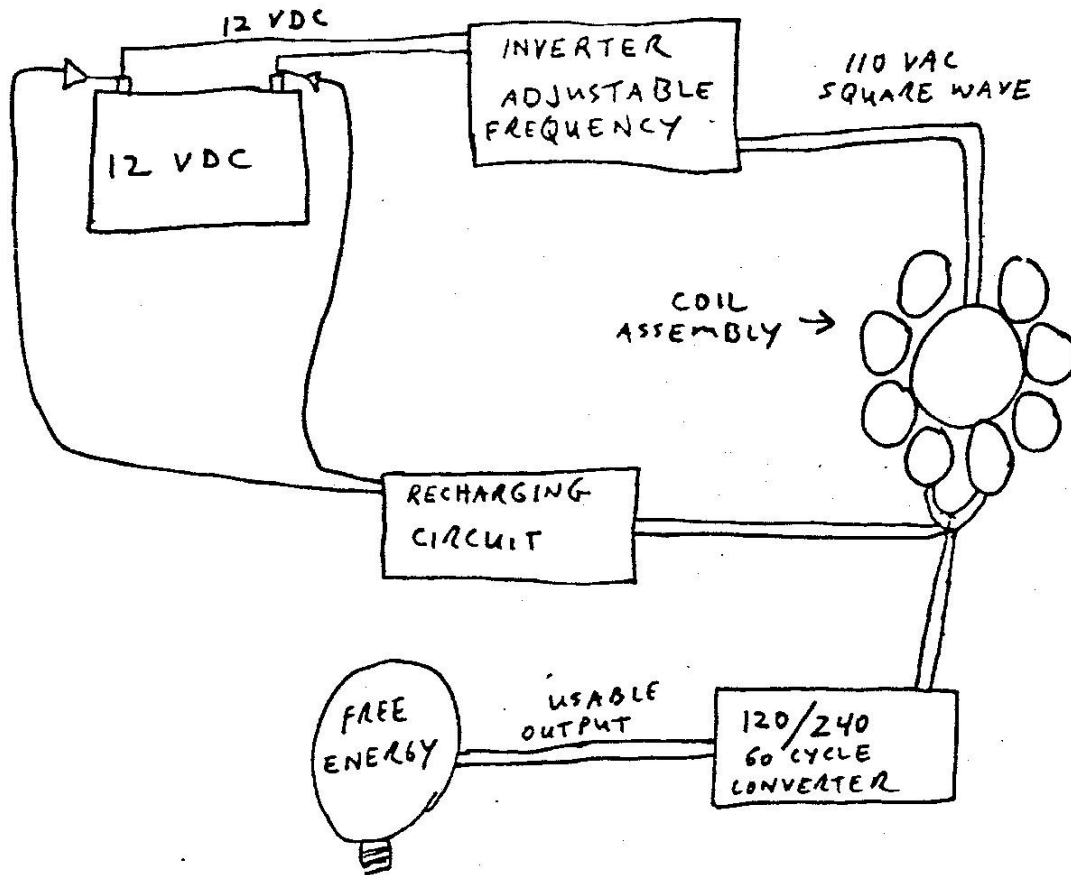 12 VDC
INVERTER
ADJUSTABLE
FREQUENCY
110 VAC
SQUARE WAVE
12 VDC
COIL
ASSEMBLY →
RECHARGING
CIRCUIT
FREE
ENERGY
USABLE
OUTPUT
120/240
60 CYCLE
CONVERTER